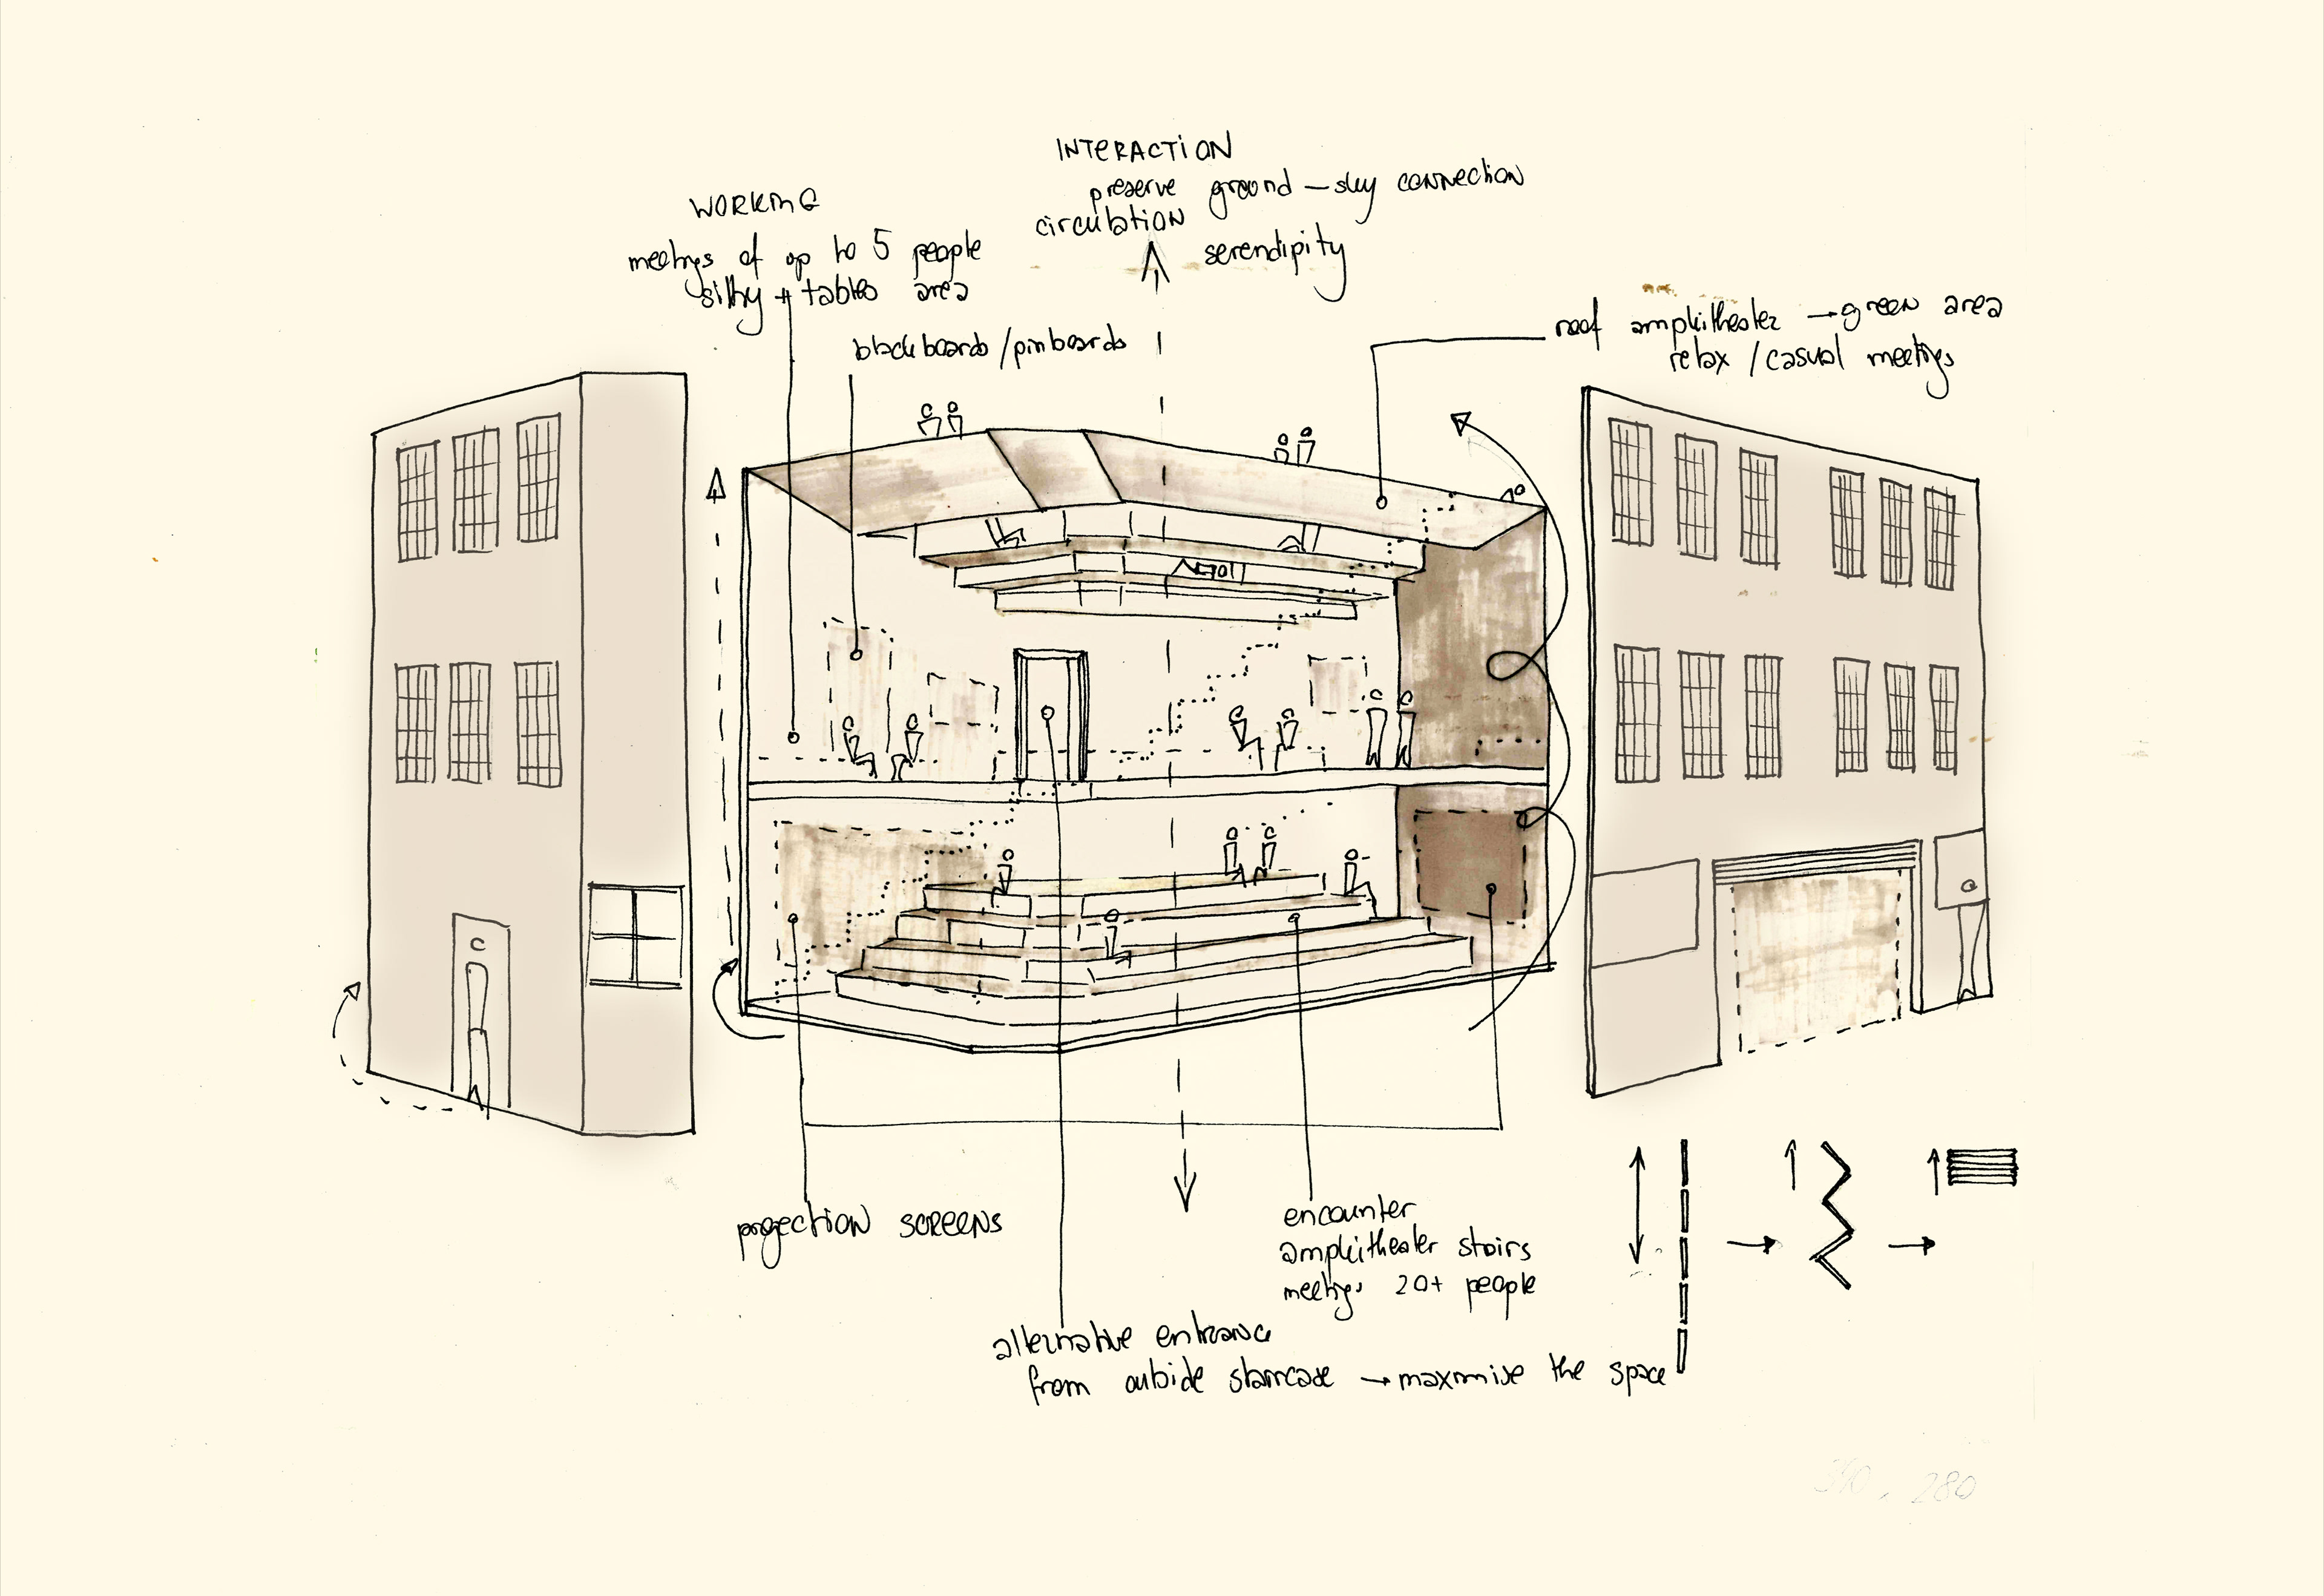 INTERACTION
preserve ground – sky connection
circulation
serendipity
WORKING
meetings of up to 5 people
sitting + tables area
blackboards / pinboards
roof amphitheater → green area
relax / casual meetings
projection screens
encounter
amphitheater stairs
meetings 20+ people
alternative entrance
from outside staircase → maximise the space
280